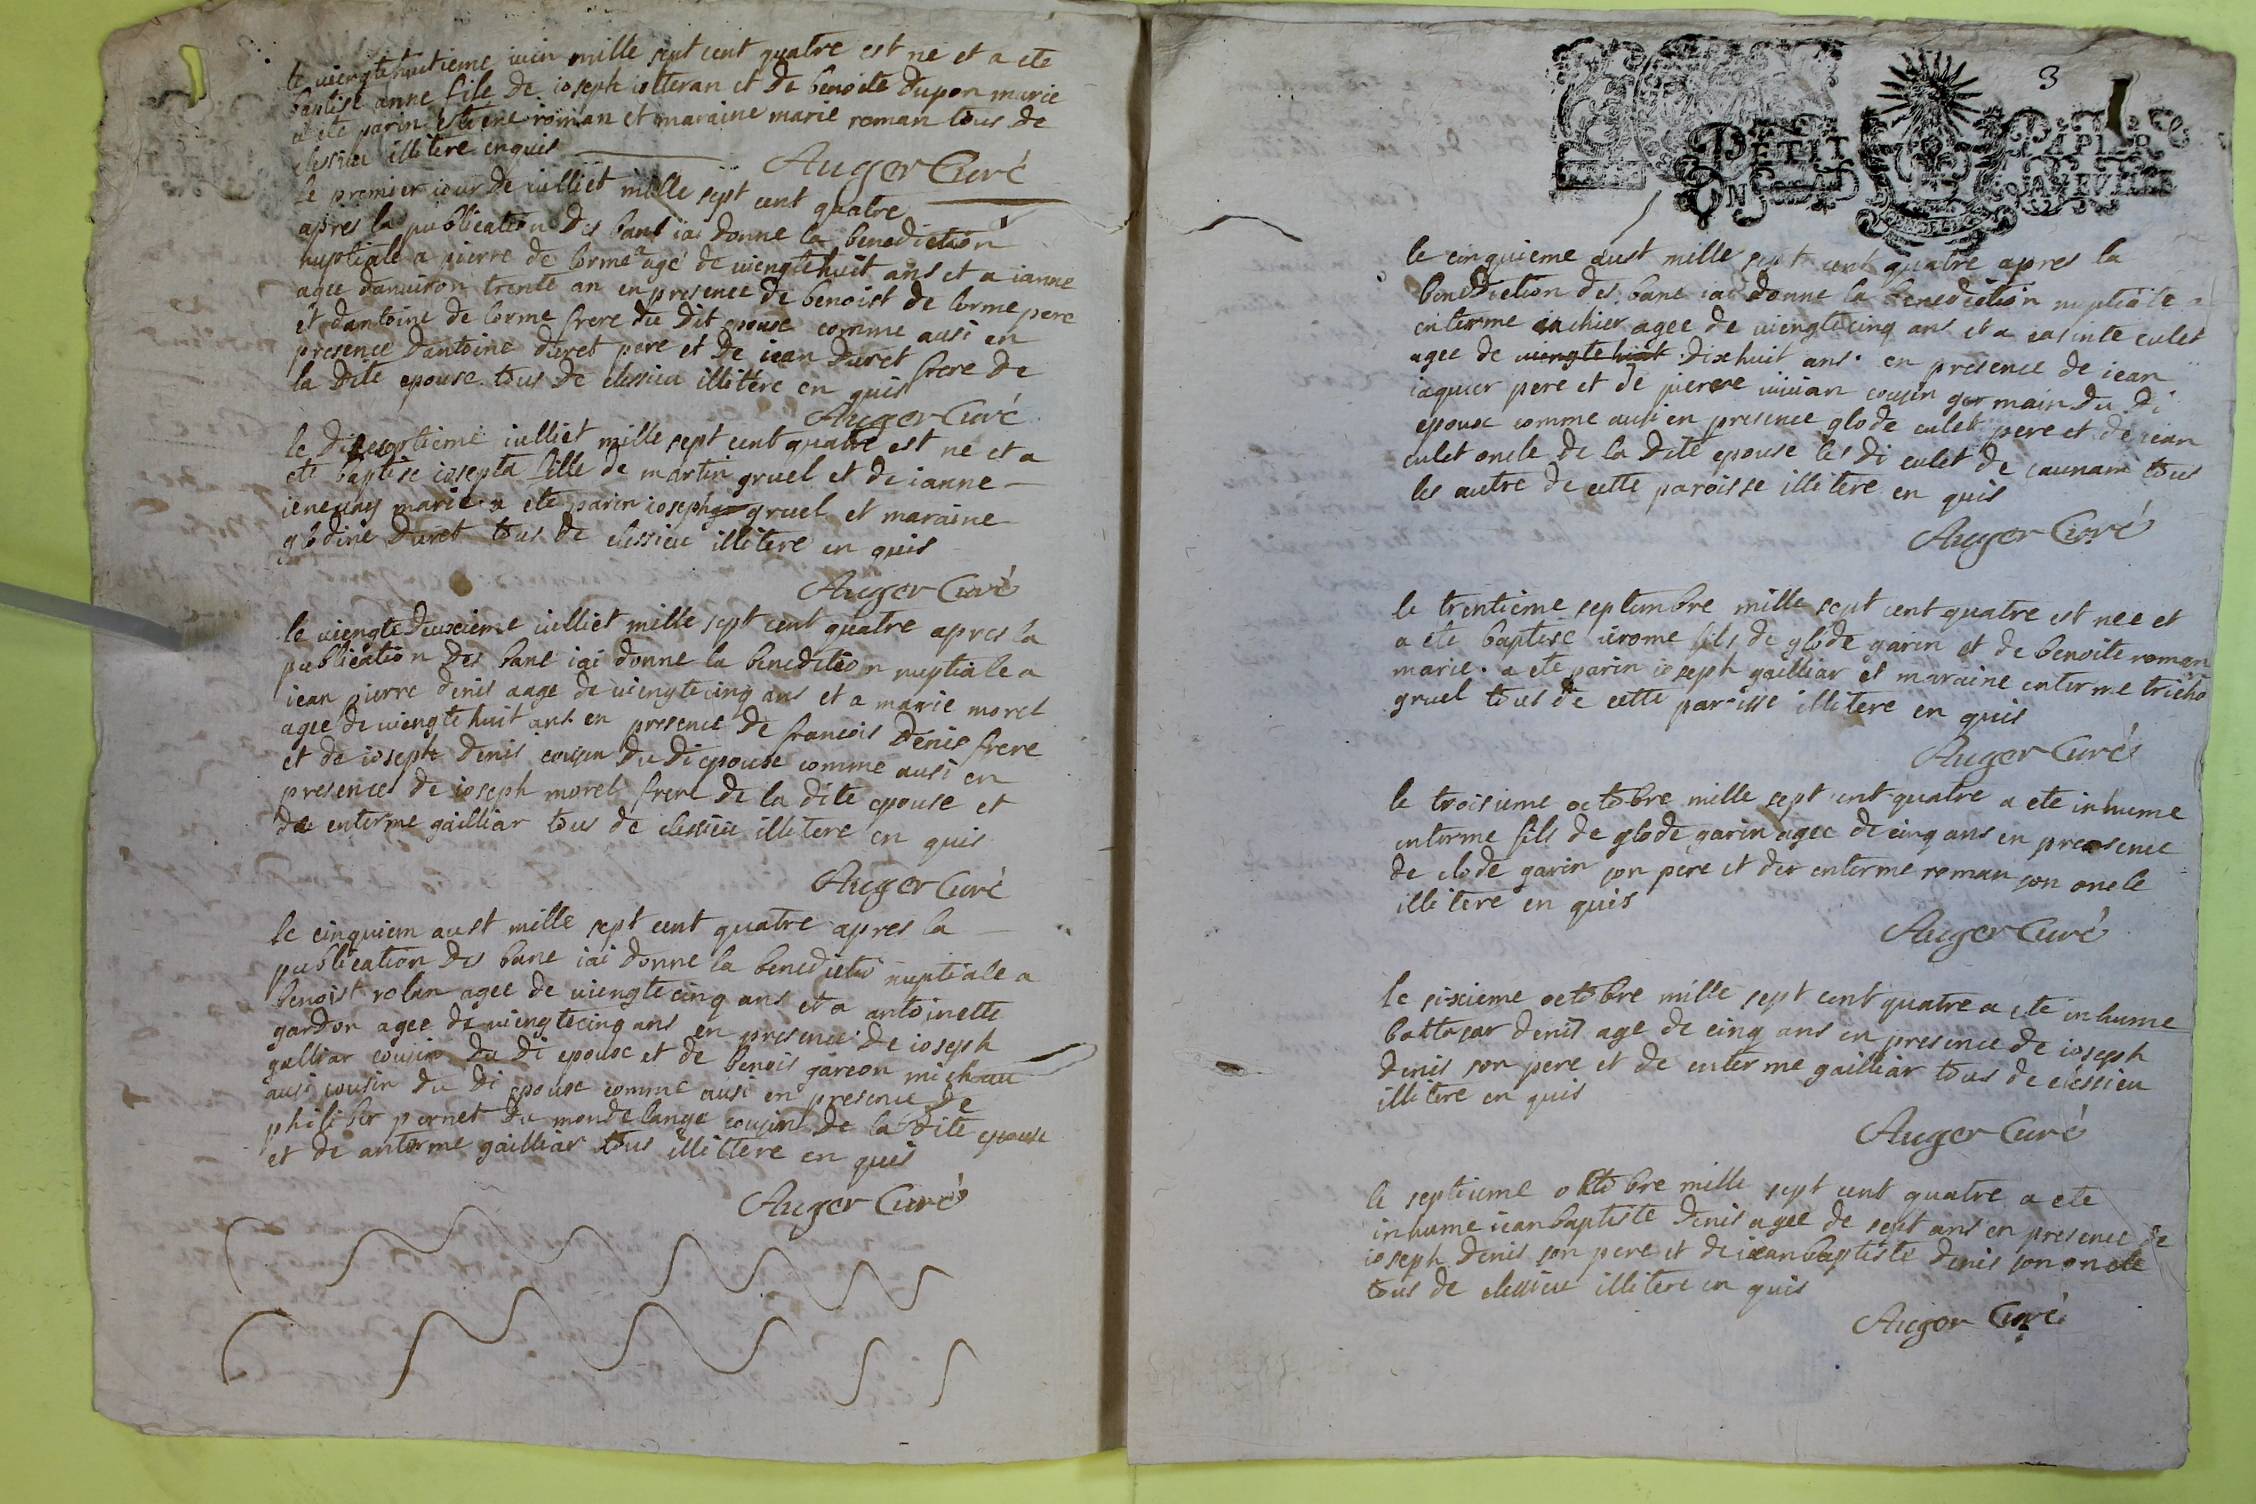 le viengtehuitieme iuin mille sept cent quatre est ne et a ete
baptise anne file de ioseph iotteran et de benoite dupon marie
a ete parin estiene roman et maraine marie roman tous de
clessieu illitere enquis
Auger Curé
le premier iour de iulliet mille sept cent quatre
apres la publication des bans iai donne la benediction
nuptiale a pierre de lorme agé de viengtehuit ans et a ianne
agee danuiron trente an en presence de benoist de lorme pere
et dantoine de lorme frere du dit epouse comme ausi en
presence dantoine duret pere et de iean duret frere de
la dite epouse tous de clessieu illitere en quis
Auger Curé
le diseptieme iulliet mille sept cent quatre est ne et a
ete baptise iosepta fille de martin gruel et de ianne
marie a ete parin ioseph gruel et maraine
glodine duret tous de clessieu illitere en quis
Auger Curé
le viengtedeuxieme iulliet mille sept cent quatre apres la
publication des banc iai donne la benedition nuptiale a
iean pierre denis aage de viengtecinq ans et a marie morel
agee de viengtehuit ans en presence de francois denis frere
et de ioseph denis cousin du di epouse comme ausi en
presence de ioseph morel frere de la dite epouse et
de enterme gailliar tous de clessieu illitere en quis
Auger Curé
le cinquiem aust mille sept cent quatre apres la
publication des banc iai donne la benedictio nuptiale a
benoist rolan agee de viengtecinq ans et a antoinette
gardon agee de viengtecinq ans en presence de ioseph
galliar cousin du di epouse et de benois garcon michau
ausi cousin du di epouse comme ausi en presence de
philiber pernet du monde lange cousin de la dite epouse
et de anterme gailliar tous illittere en quis
Auger Curé
3
PETIT PAPIER
le cinquieme aust mille sept cent quatre apres la
benediction des banc iai donne la benediction nuptiale a
enterme iachier agee de viengtecinq ans et a iasinte culet
agee de viengte huit dixhuit ans en presence de iean
iaquier pere et de pierre vivian cousin germain du di
epouse comme ausi en presence glode culet pere et de iean
culet oncle de la dite epouse les di culet de tous
les autre de cette paroisse illitere en quis
Auger Curé
le trentieme septembre mille sept cent quatre est nee et
a ete baptise ierome fils de glode garin et de benoite roman
marie a ete parin ioseph gailliar et maraine enterme tricho
gruel tous de cette paroisse illitere en quis
Auger Curé
le troisieme octobre mille sept cent quatre a ete inhume
enterme fils de glode garin agee de cinq ans en presence
de clode garin son pere et der enterme roman son oncle
illitere en quis
Auger Curé
le sixieme octobre mille sept cent quatre a ete inhume
baltasar denis age de cinq ans en presence de ioseph
denis son pere et de enterme gailliar tous de clessieu
illitere en quis
Auger Curé
le septieme octobre mille sept cent quatre a ete
inhume iean baptiste denis agee de sept ans en presence de
ioseph denis son pere et de iean baptiste denis son oncle
tous de clessieu illitere en quis
Auger Curé